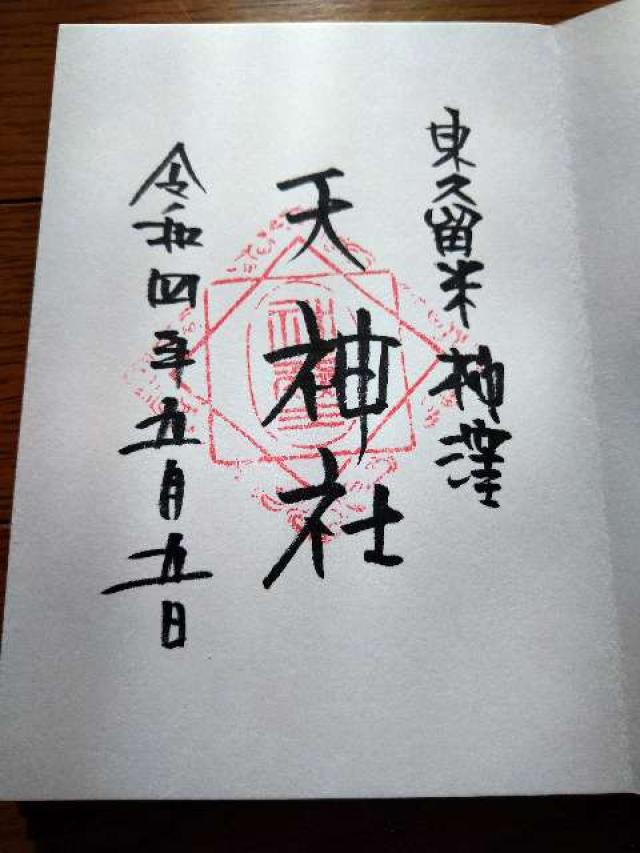 東久留米 柳窪
天神社
令和四年五月五日